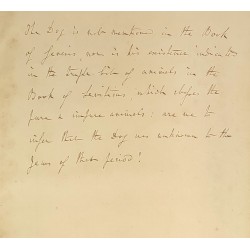 The Dog is not mentioned in the Book
of Genesis, nor is his existence indicated
in the temple lists of animals in the
Book of Leviticus, which stops the
pure & impure animals: are we to
infer that the Dog was unknown to the
Jews of that period!